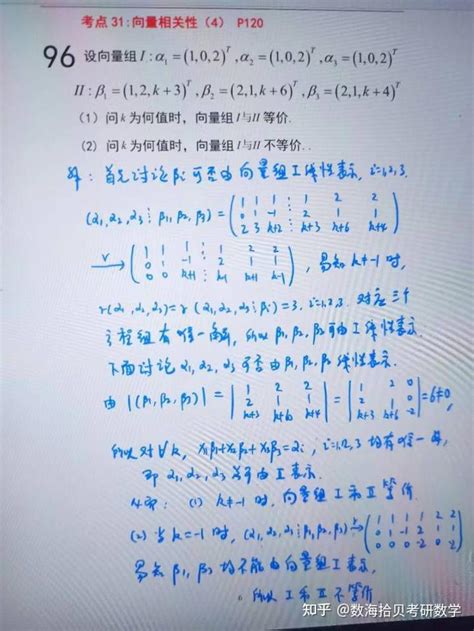 考点 31:向量相关性（4） P120
96 设向量组 I : α₁ = (1,0,2)ᵀ , α₂ = (1,0,2)ᵀ , α₃ = (1,0,2)ᵀ
II : β₁ = (1,2,k+3)ᵀ , β₂ = (2,1,k+6)ᵀ , β₃ = (2,1,k+4)ᵀ
（1）问 k 为何值时，向量组 I与II 等价.
（2）问 k 为何值时，向量组 I与II 不等价..
解：首先讨论 βᵢ 可否由向量组 I 线性表示, i=1,2,3.
(α₁,α₂,α₃ ⋮ β₁,β₂,β₃) = ( 1 1 1 ⋮ 1 2 2
0 1 -1 ⋮ 2 1 1
2 3 k+2 ⋮ k+3 k+6 k+4 )
r→ ( 1 1 1 ⋮ 1 2 2
0 1 -1 ⋮ 2 1 1
0 0 k+1 ⋮ k-1 k+1 k-1 ) , 易知 k≠-1 时,
r(α₁,α₂,α₃) = r(α₁,α₂,α₃ ⋮ βᵢ) = 3. i=1,2,3. 对应三个
方程组有唯一解, 所以 β₁,β₂,β₃ 可由 I 线性表示.
下面讨论 α₁,α₂,α₃ 可否由 β₁,β₂,β₃ 线性表示.
由 |(β₁,β₂,β₃)| = | 1 2 2
2 1 1
k+3 k+6 k+4 | = | 1 2 0
2 1 0
k+3 k+6 -2 | = 6≠0,
所以对∀k, x₁β₁+x₂β₂+x₃β₃=αᵢ, i=1,2,3 均有唯一解,
即 α₁,α₂,α₃ 可由 I 表示.
从而: (1) k≠-1 时, 向量组 I 和 II 等价.
(2) 当 k=-1 时, (α₁,α₂,α₃ ⋮ β₁,β₂,β₃) → ( 1 1 1 1 2 2
0 1 -1 2 1 1
0 0 0 -2 0 -2 )
易知 β₁, β₃ 均不能由向量组 I 表示,
所以 I 和 II 不等价
6
知乎 @数海拾贝考研数学